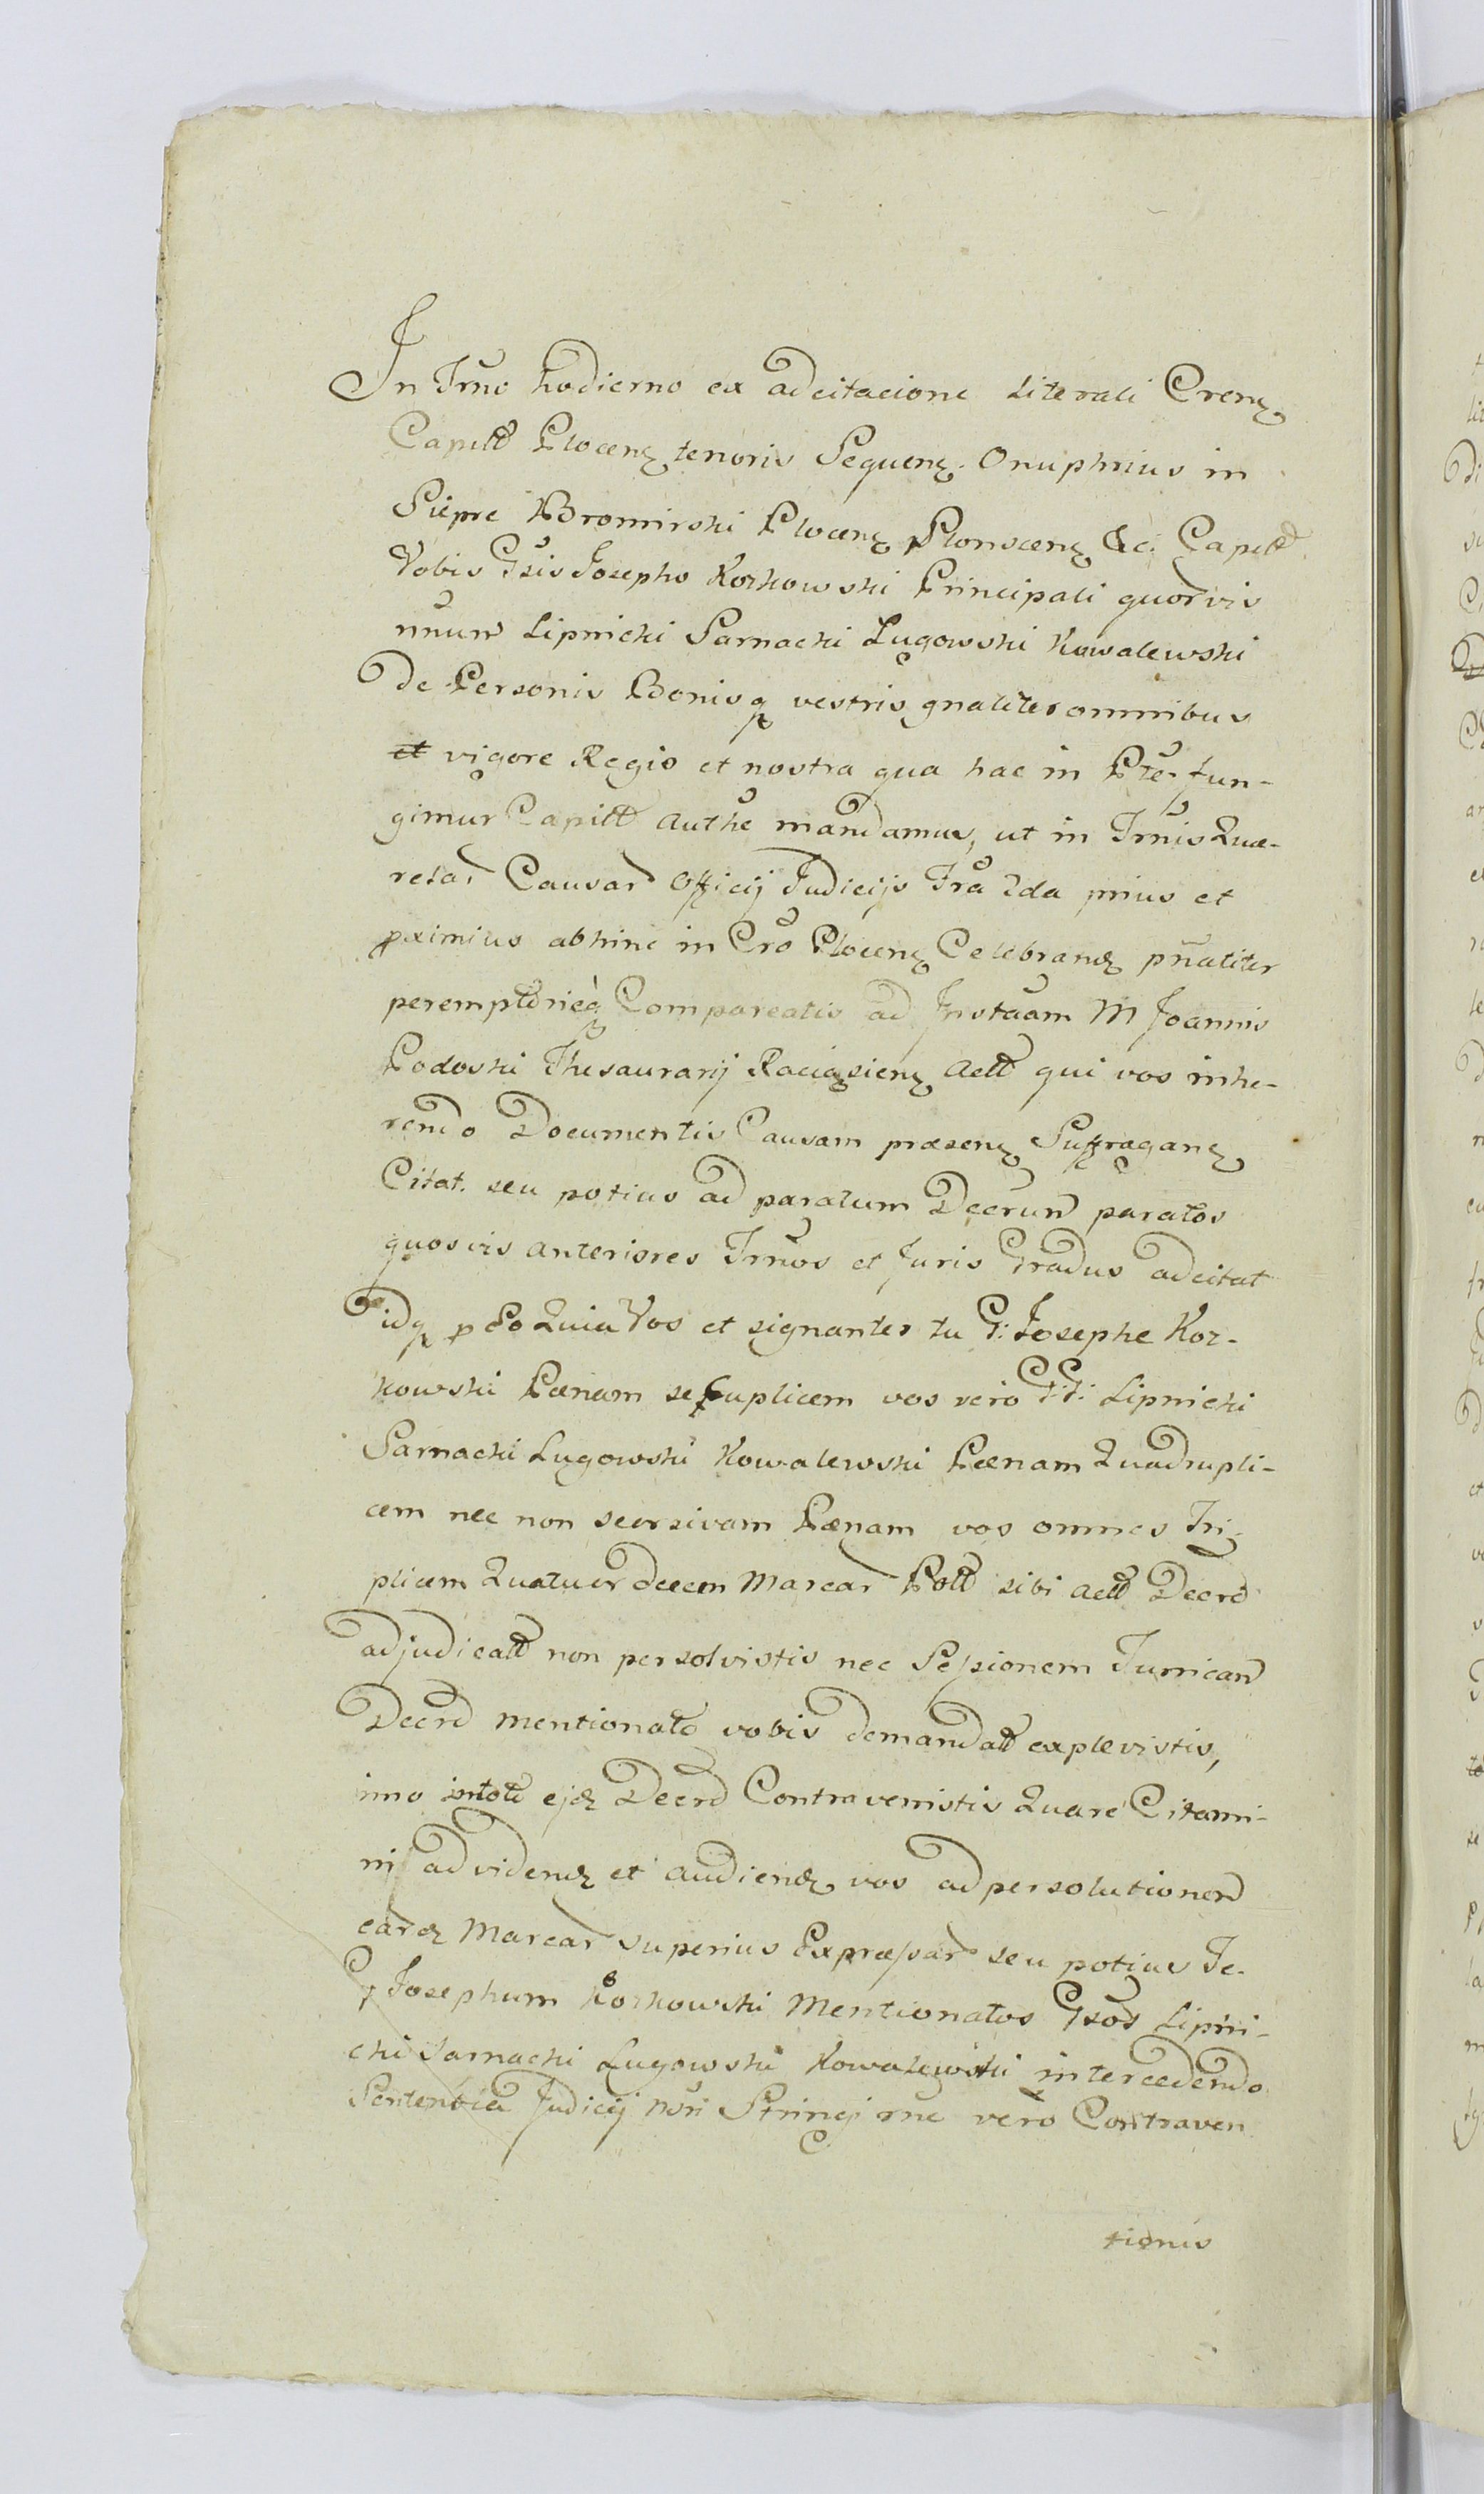 In Trno hodierno ex adcitacione Literali Cren
Capitt Plocen tenoris Sequen. Onuphrius in
Siepre Bromirski Plocen Plonscen &c: Capitt
Vobis Gsis Josepho Korkowski Principali quorvis
nnum Lipnicki Sarnacki Lugowski Kowalewski
De Personis Bonisq vestris gnaliter omnibus
et vigore Regio et nostra qua hac in Pte fun-
gimur Capitt Authe mandamus, ut in Trnis Quæ-
relar Causar Officij Judicijs Fra 2da prius et
pximius abhinc in Cro Plocen Celebrand pnaliter
peremptorieq Compareatis ad Instaam M Joannis
Podoski Thesaurarij Raciązien Actt qui vos inhe-
rendo Documentis Causam præsen Suffragan
Citat. seu potius ad paratum Decrum paratos
quosvis anteriores Trnos et Juris Gradus adcitat
idq p Eo Quia Vos et signanter tu G: Josephe Kor-
kowski Pænam sexcuplicem vos vero G:G: Lipnicki
Sarnacki Lugowski Kowalewski Pænam Quadrupli-
cem nec non seorsivam Pænam vos omnes Tri-
plicem Quatuordecem Marcar Poll sibi Actt Decro
adjudicatt non persolvistis nec Sessionem Turricam
Decro mentionato vobis demandatt explevistis,
imo intott ejd Decro Contravenistis Quare Citami-
ni ad videnд et audiend vos ad persolutionem
eard Marcar superius Expræssar seu potius Te
G Josephum Korkowski Mentionatos Gsos Lipni-
cki Sarnacki Lugowski Kowalewski intercedendo
Sententia Judicij Nsri Stringi rne vero Contraven
tionis